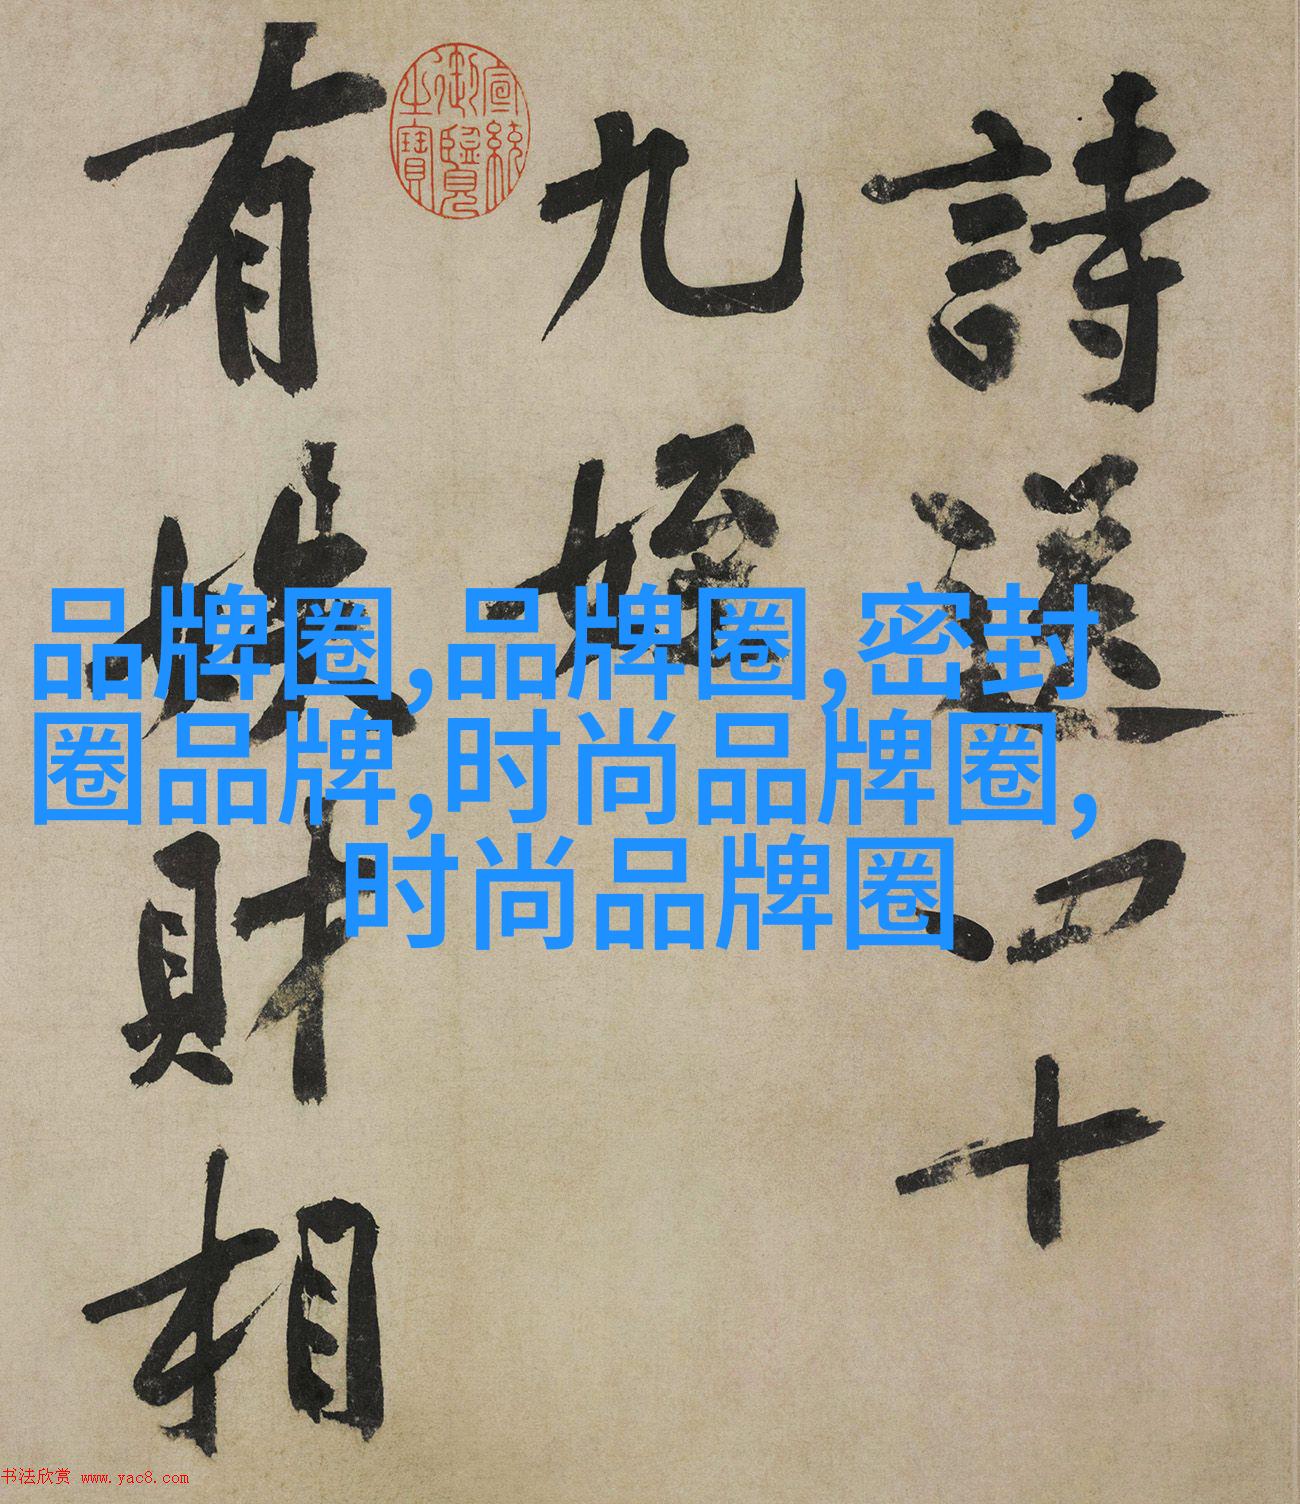 詩送四十
九姪
有財相
宣統御覽之寶
品牌圈,品牌圈,密封
圈品牌,时尚品牌圈,
时尚品牌圈
书法欣赏 www.yac8.com